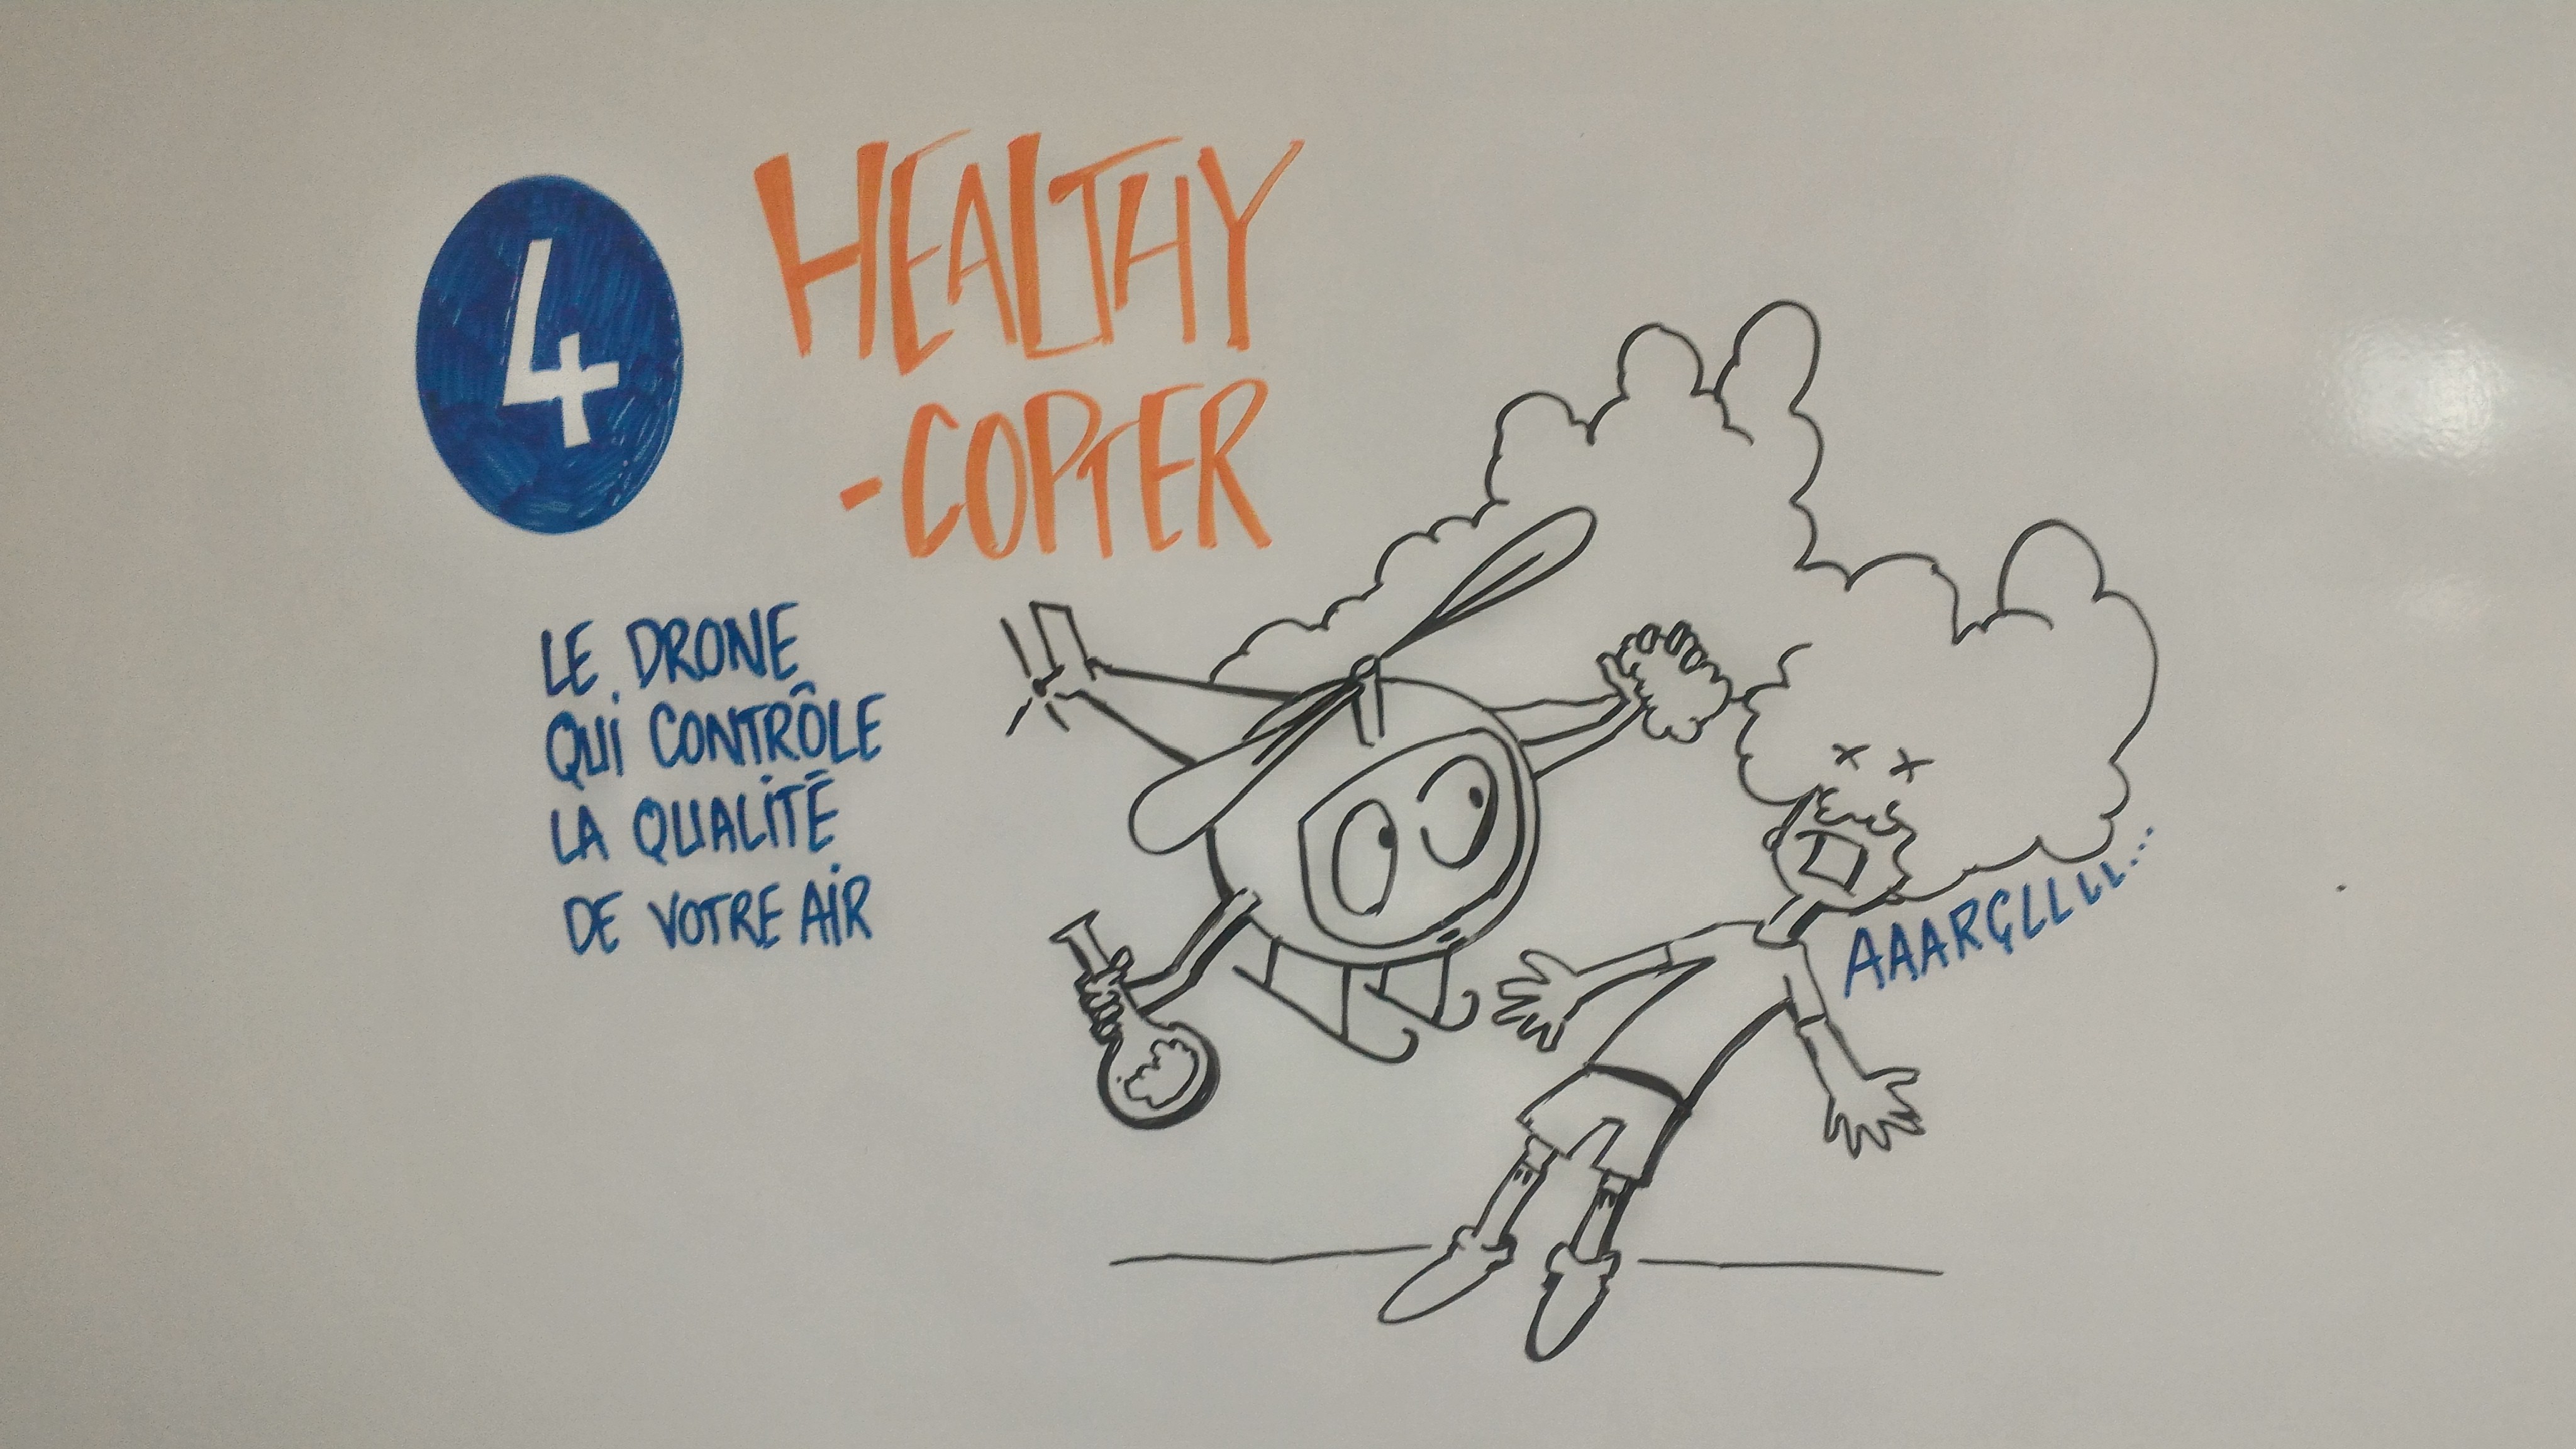 4
HEALTHY
-COPTER
LE DRONE
QUI CONTRÔLE
LA QUALITÉ
DE VOTRE AIR
AAARGLLLLL...